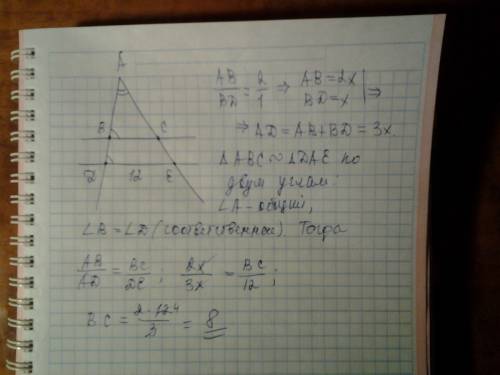 A
B C
D 12 E
AB/BD = 2/1 ⇒ AB = 2x | ⇒
BD = x
⇒ AD = AB + BD = 3x.
ΔABC ∼ ΔDAE по
двум углам:
∠A - общий,
∠B = ∠D (соответственные). Тогда
AB/AD = BC/DE; 2x/3x = BC/12;
BC = 2·12⁴/3 = 8